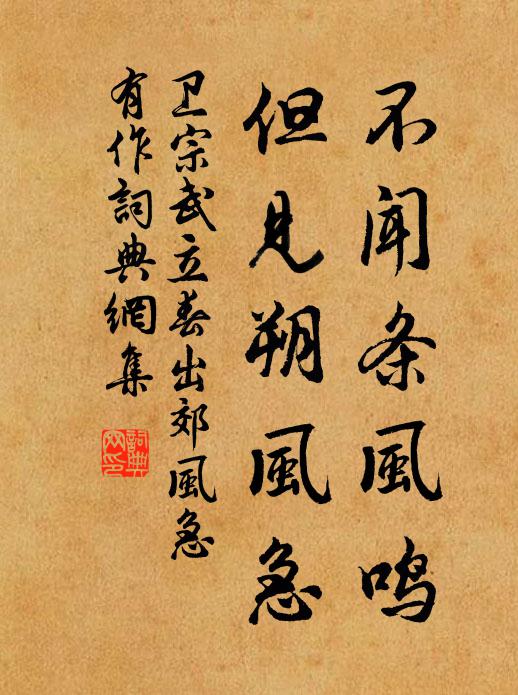 不闻条風鸣
但见朔風急
卫宗武立春出郊風急
有作詞典網集
詞典
网印